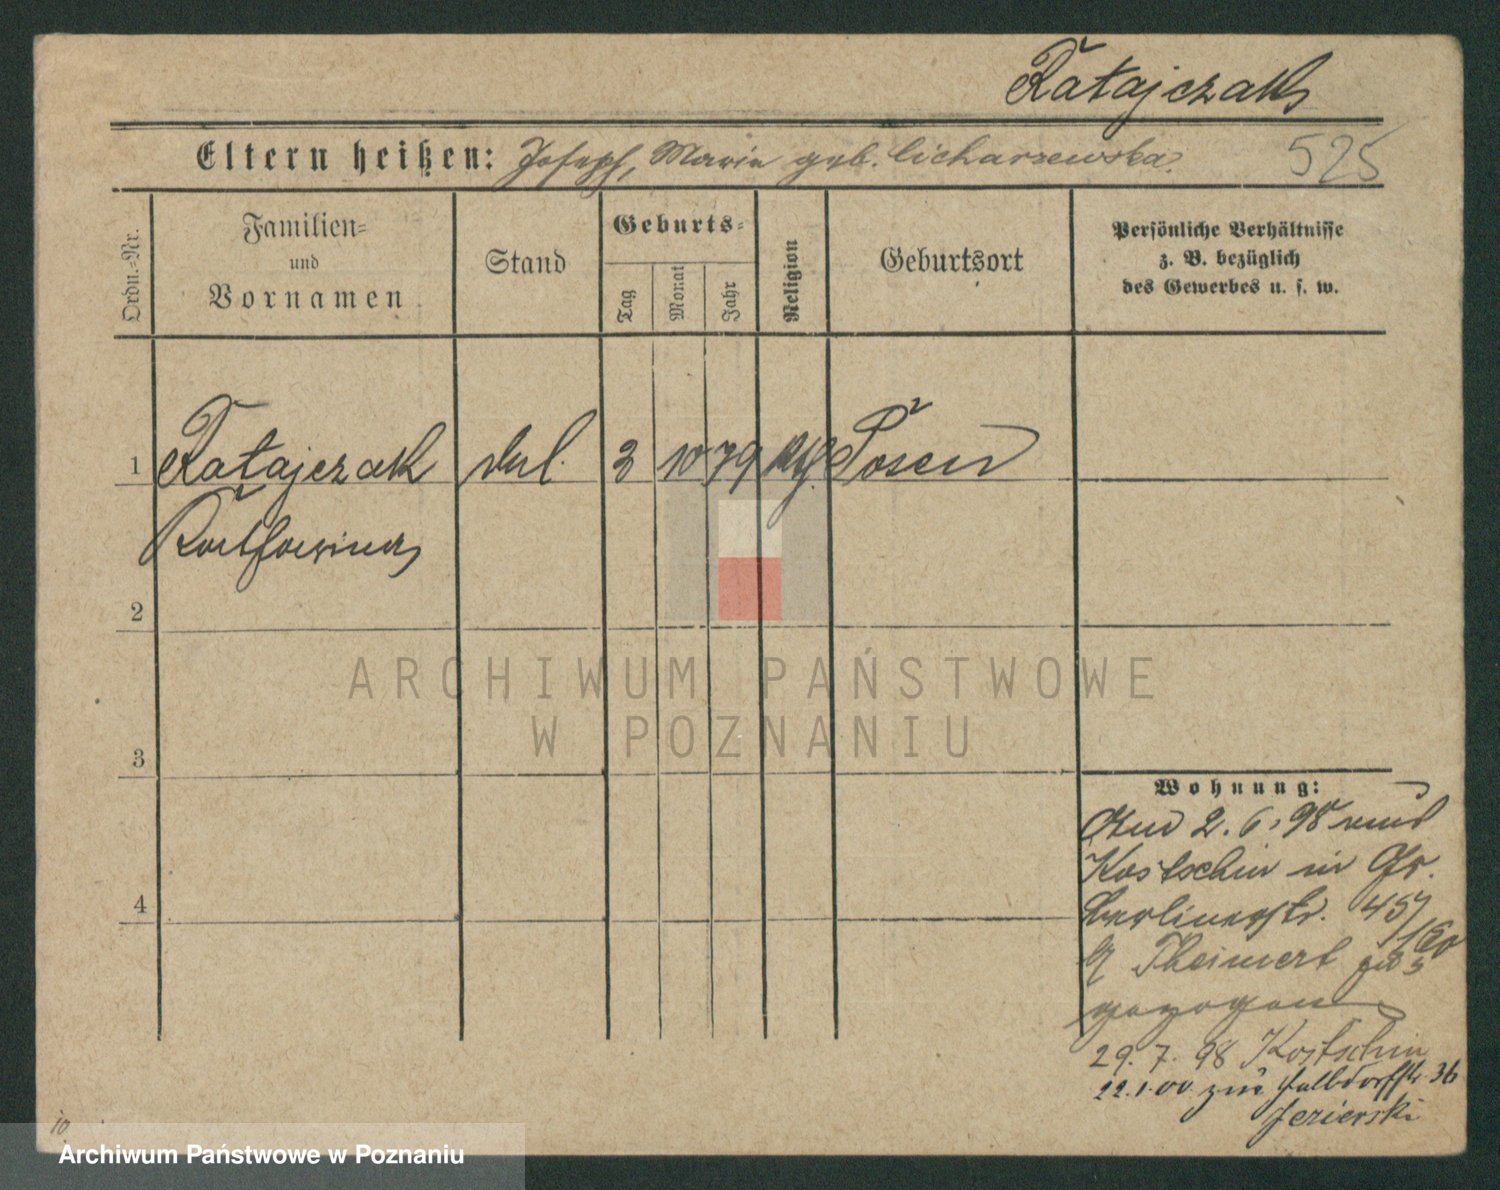 Ratajczak
Eltern heißen: Joseph, Marie geb. Licharzewska.
525
Ordn.-Nr.
Familien-
und
Vornamen
Stand
Geburts-
Tag
Monat
Jahr
Religion
Geburtsort
Persönliche Verhältnisse
z. B. bezüglich
des Gewerbes u. s. w.
1 Ratajczak 2 10 79 Posen
2
3
4
ARCHIWUM PAŃSTWOWE
W POZNANIU
Wohnung:
2. 6. 98 von
Kostschin in Gr.
Berlinerstr.
Theinert
gezogen
29. 7. 98 Kostschin
22. 1. 00 zur Halbdorffstr. 36
Jezierski
10
Archiwum Państwowe w Poznaniu